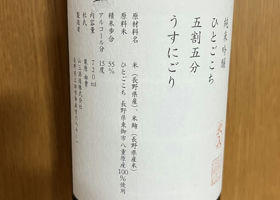 純米吟醸
ひとごこち
五割五分
うすにごり
原材料名 米（長野県産）、米麹（長野県産米）
原料米 ひとごこち 長野県東御市八重原産100%使用
精米歩合 55%
アルコール分 15度
内容量 720ml
杜氏
製造者